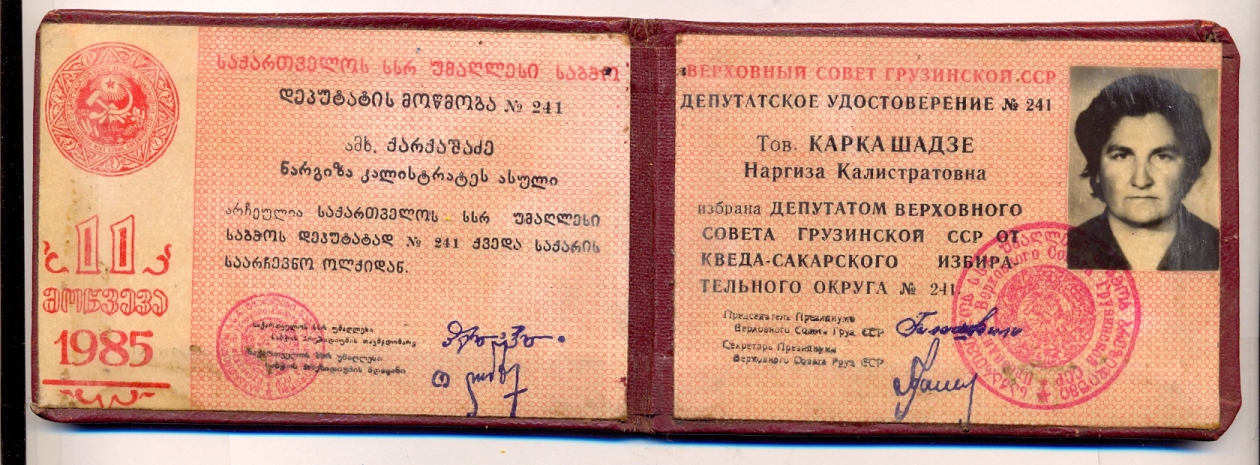 11
მოწვევა
1985
საქართველოს სსრ უმაღლესი საბჭო
დეპუტატის მოწმობა № 241
ამხ. ქარქაშაძე
ნარგიზა კალისტრატეს ასული
არჩეულია საქართველოს სსრ უმაღლესი
საბჭოს დეპუტატად № 241 ქვედა საქარის
საარჩევნო ოლქიდან.
საქართველოს სსრ უმაღლესი
საბჭოს პრეზიდიუმის თავმჯდომარე
საქართველოს სსრ უმაღლესი
საბჭოს პრეზიდიუმის მდივანი
ВЕРХОВНЫЙ СОВЕТ ГРУЗИНСКОЙ ССР
ДЕПУТАТСКОЕ УДОСТОВЕРЕНИЕ № 241
Тов. КАРКАШАДЗЕ
Наргиза Калистратовна
избрана ДЕПУТАТОМ ВЕРХОВНОГО
СОВЕТА ГРУЗИНСКОЙ ССР ОТ
КВЕДА-САКАРСКОГО ИЗБИРА-
ТЕЛЬНОГО ОКРУГА № 241
Председатель Президиума
Верховного Совета Груз. ССР
Секретарь Президиума
Верховного Совета Груз. ССР